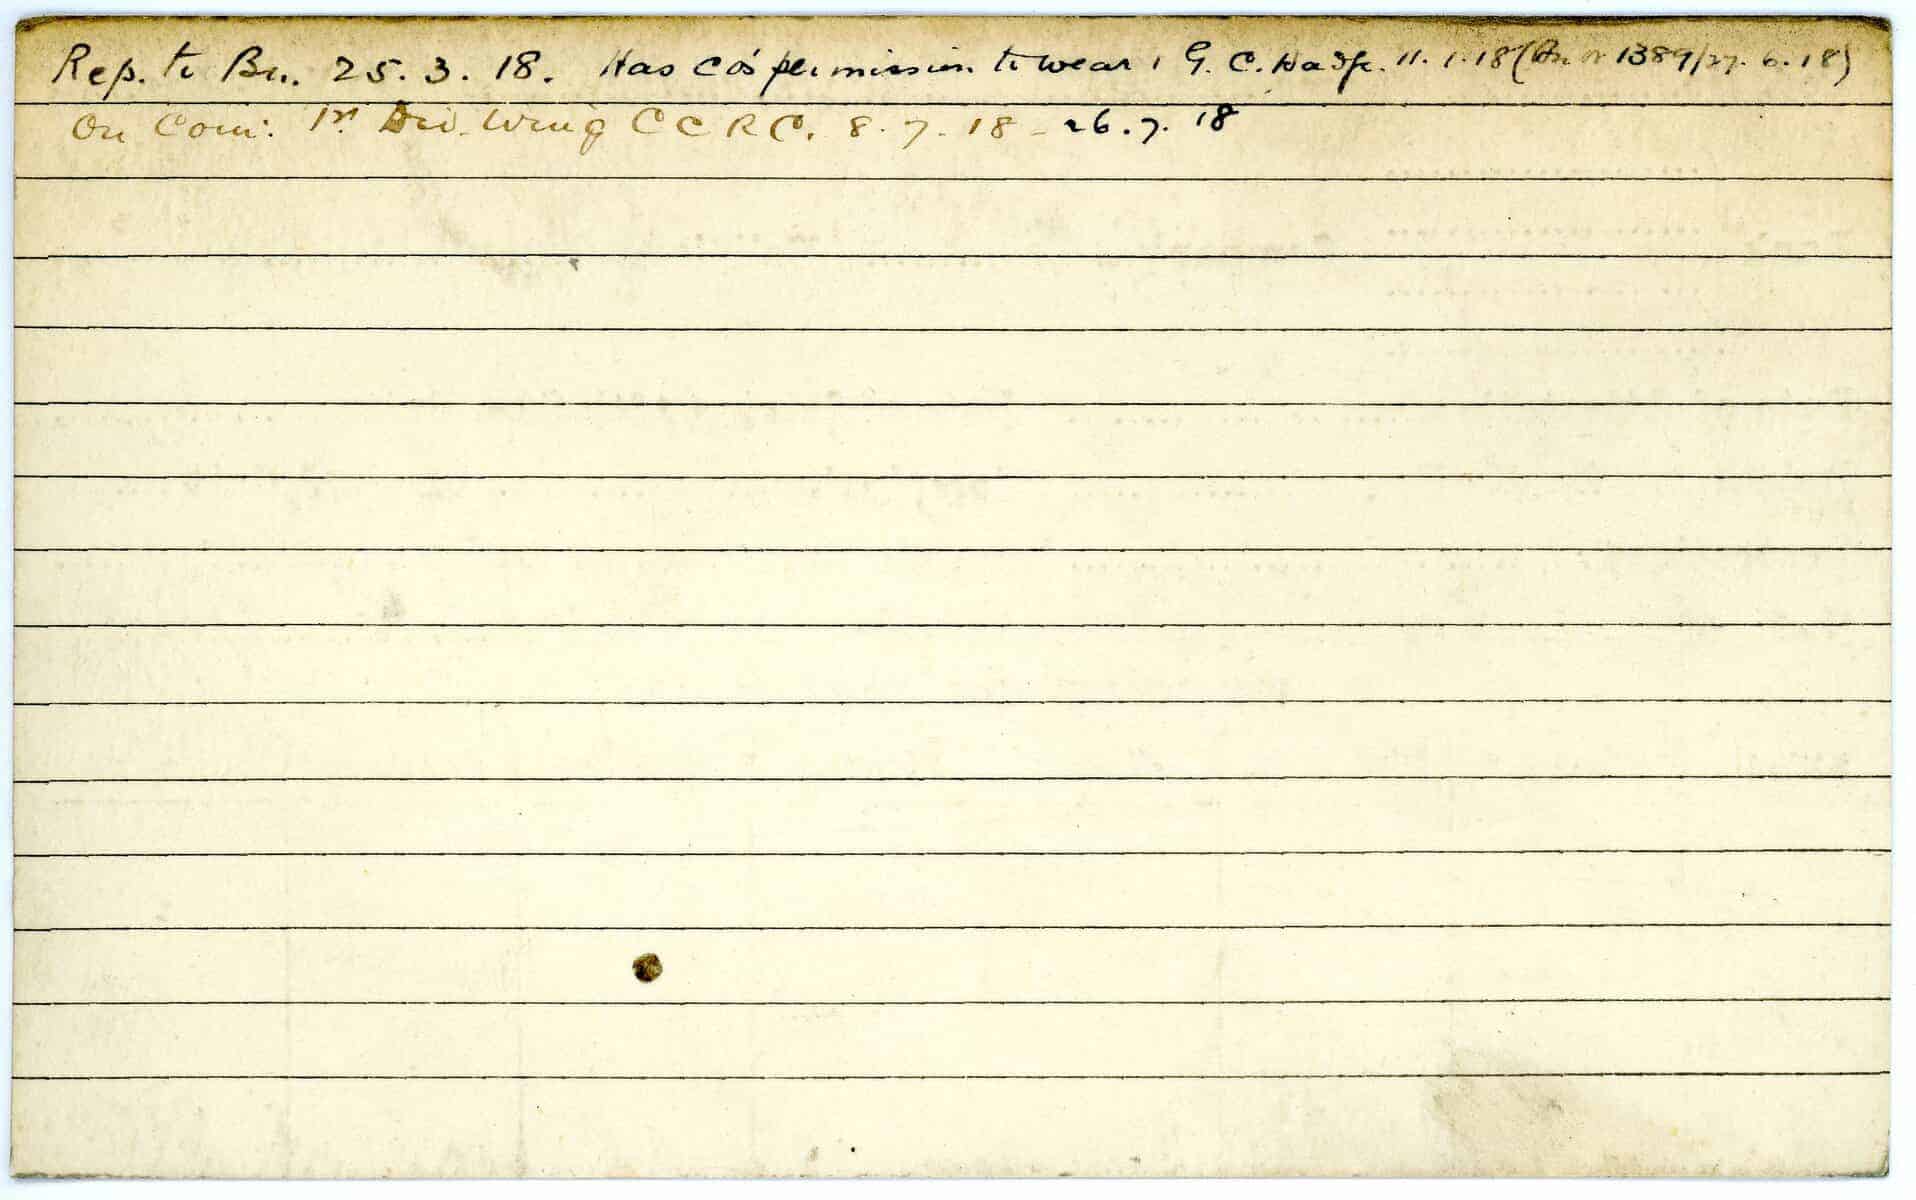 Rep. to Bn. 25. 3. 18. Has C.O's permission to wear 1 G. C. Badge. 11. 1. 18 (Bn or 1389/27. 6. 18)
On Com: 1st Div. Wing C C R C. 8. 7. 18 - 26. 7. 18